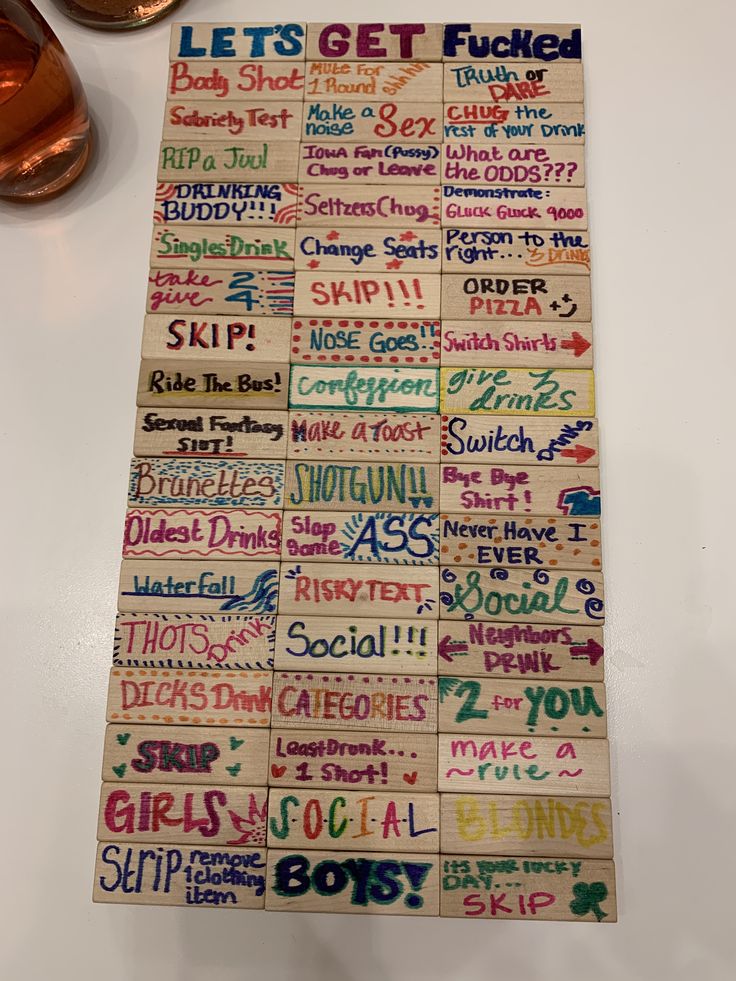 LET'S GET Fucked
Body Shot
Mute For
1 Round Shhhh
Truth or
DARE
Sobriety Test
Make a
noise Sex
CHUG the
rest of your Drink
RIP a Juul
IOWA Fan (Pussy)
Chug or Leave
What are
the ODDS???
DRINKING
BUDDY!!!
Seltzers Chug
Demonstrate:
Gluck Gluck 9000
Singles Drink
Change Seats
Person to the
right... 3 Drinks
take 2
give 4
SKIP!!!
ORDER
PIZZA
SKIP!
NOSE Goes!!
Switch Shirts
Ride The Bus!
Confession
give 3
drinks
Sexual Fantasy
SLUT!
Make a Toast
Switch Drinks
Brunettes
SHOTGUN!!
Bye Bye
Shirt!
Oldest Drinks
Slap
Some ASS
Never Have I
EVER
Waterfall
RISKY TEXT
Social
THOTS Drink
Social!!!
Neighbors
DRINK
DICKS Drink
CATEGORIES
2 for you
SKIP
Least Drunk...
1 Shot!
make a
~rule~
GIRLS
S.O.C.I.A.L
BLONDES
Strip remove
1 clothing
item
BOYS!
ITS YOUR LUCKY
DAY...
SKIP